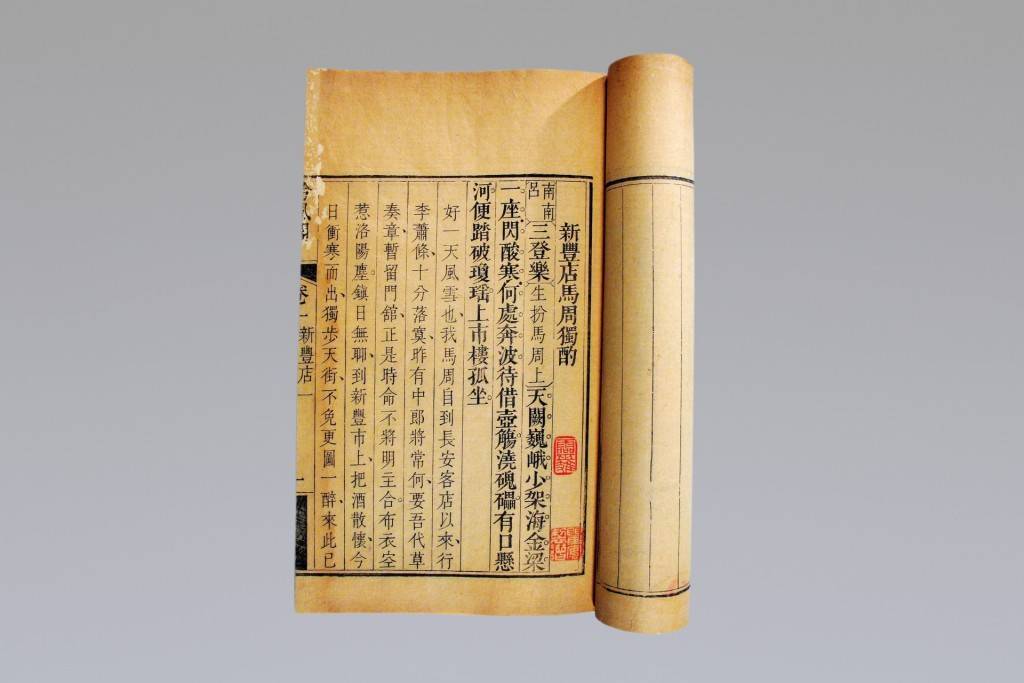 新豐店馬周獨酌
南南呂三登樂生扮馬周上天闕巍峨少架海金梁
一座閃酸寒何處奔波待借壺觴澆磈礧有口懸
河便踏破瓊瑤上市樓孤坐
好一天風雪也、我馬周自到長安客店以來、行
李蕭條、十分落寞、昨有中郎將常何、要吾代草
奏章、暫留門舘、正是時命不將明主合、布衣空
惹洛陽塵。鎮日無聊、到新豐市上、把酒散懷、今
日衝寒而出、獨步天街、不免更圖一醉、來此已
卷一 新豐店 一